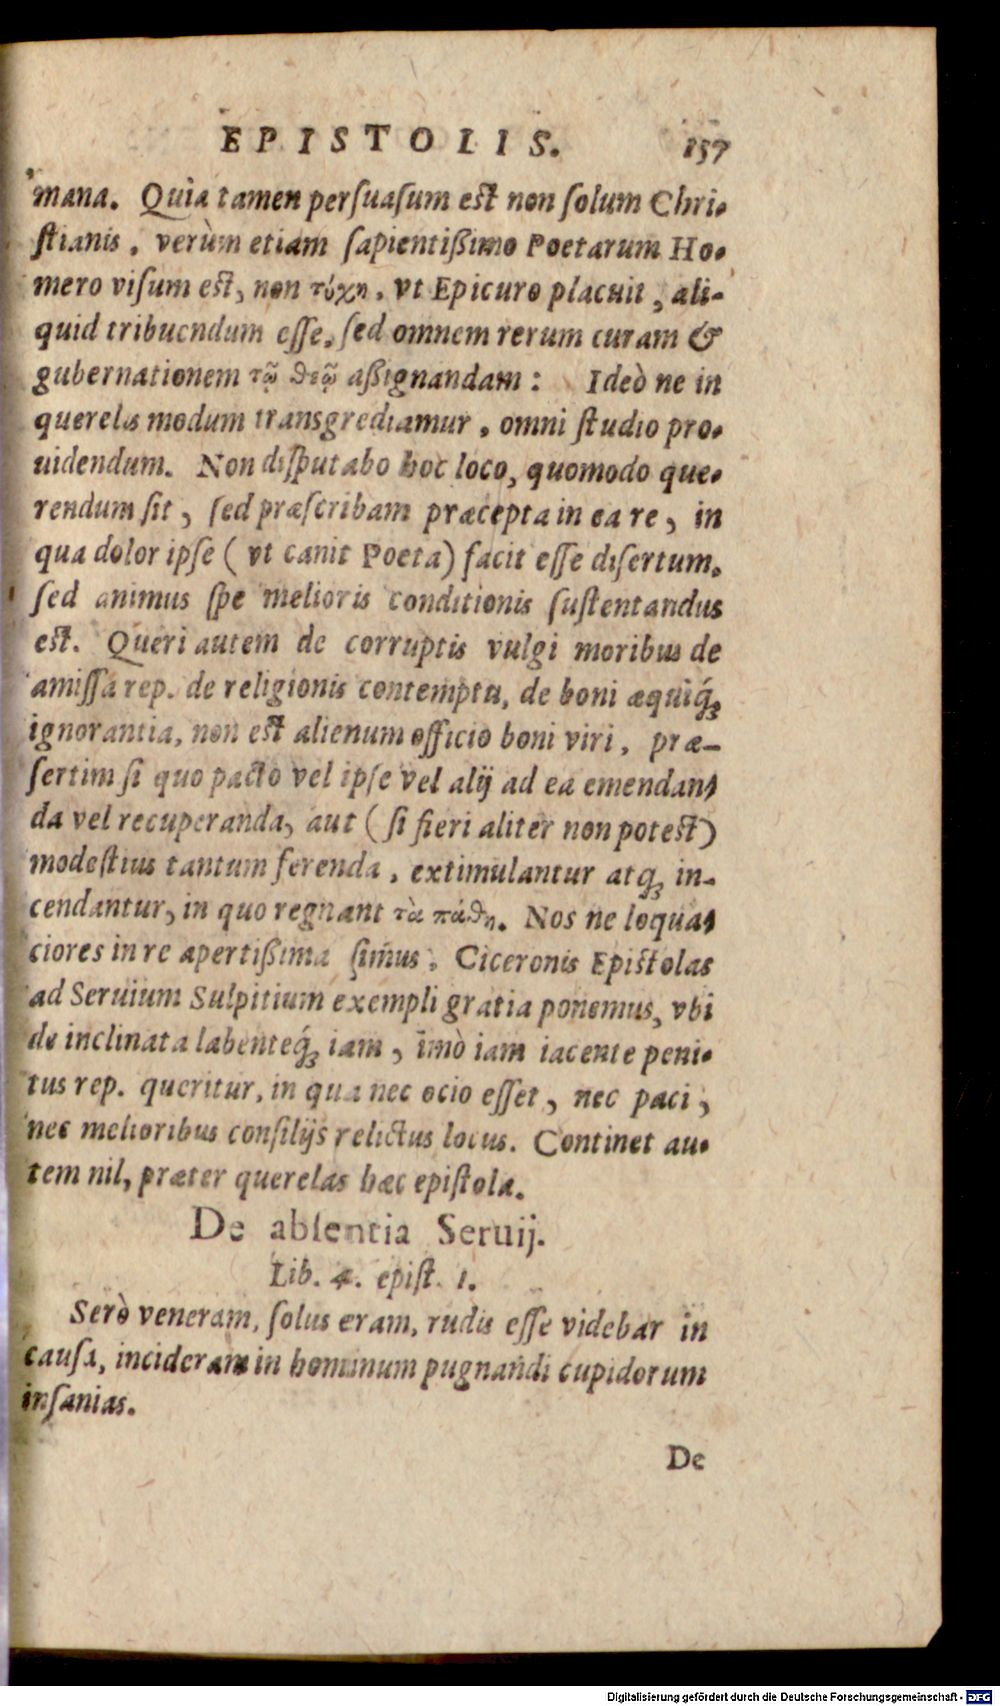 EPISTOLIS. 157
mana. Quia tamen persuasum est non solum Chri-
stianis, verùm etiam sapientißimo Poetarum Ho-
mero visum est, non τύχη, vt Epicuro placuit, ali-
quid tribuendum esse, sed omnem rerum curam &
gubernationem τῷ θεῷ aßignandam: Ideò ne in
querelis modum transgrediamur, omni studio pro-
uidendum. Non disputabo hoc loco, quomodo que-
rendum sit, sed præscribam præcepta in ea re, in
qua dolor ipse (vt canit Poeta) facit esse disertum,
sed animus spe melioris conditionis sustentandus
est. Queri autem de corruptis vulgi moribus de
amissa rep. de religionis contemptu, de boni æquiq́ꝫ
ignorantia, non est alienum officio boni viri, præ-
sertim si quo pacto vel ipse vel alij ad ea emendan-
da vel recuperanda, aut (si fieri aliter non potest)
modestius tantum ferenda, extimulantur atqꝫ in-
cendantur, in quo regnant τὰ πάθη. Nos ne loqua-
ciores in re apertißima simus, Ciceronis Epistolas
ad Seruium Sulpitium exempli gratia ponemus, vbi
de inclinata labenteq́ꝫ iam, imò iam iacente peni-
tus rep. queritur, in qua nec ocio esset, nec paci,
nec melioribus consilijs relictus locus. Continet au-
tem nil, præter querelas hæc epistola.
De absentia Seruij.
Lib. 4. epist. 1.
Serò veneram, solus eram, rudis esse videbar in
causa, incideram in hominum pugnandi cupidorum
insanias.
De
Digitalisierung gefördert durch die Deutsche Forschungsgemeinschaft - DFG